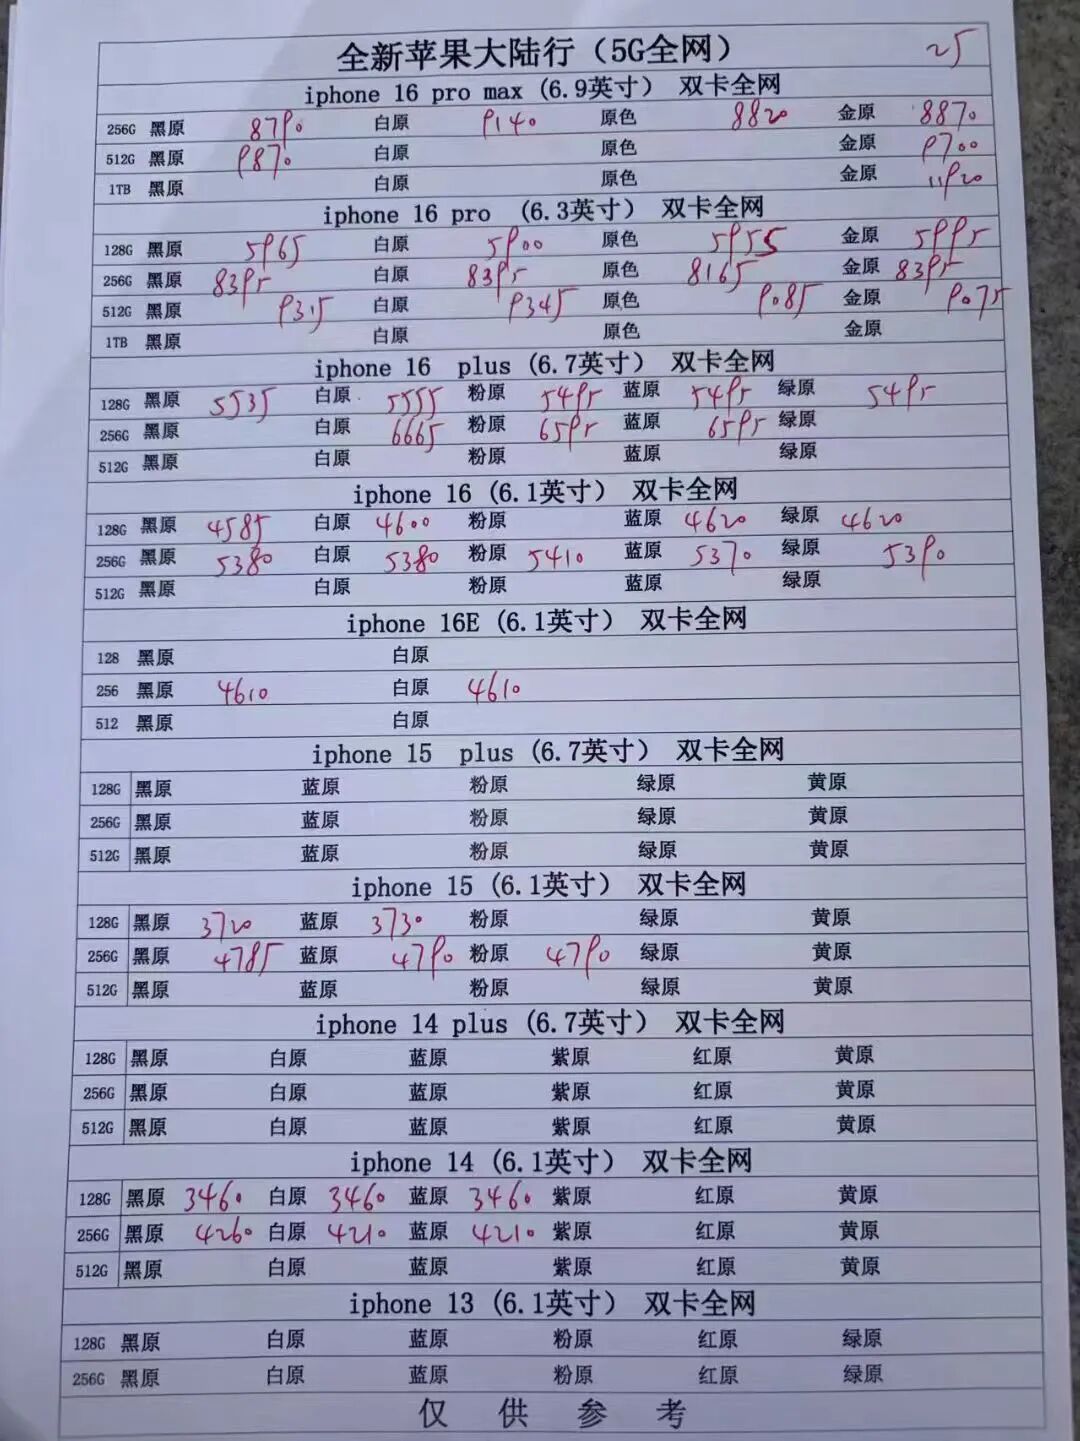 全新苹果大陆行（5G全网） 25
iphone 16 pro max（6.9英寸） 双卡全网
256G 黑原 8790 白原 9140 原色 8820 金原 8870
512G 黑原 9870 白原 原色 金原 9700
1TB 黑原 白原 原色 金原 11920
iphone 16 pro （6.3英寸） 双卡全网
128G 黑原 5965 白原 5900 原色 5955 金原 5995
256G 黑原 8395 白原 8395 原色 8165 金原 8395
512G 黑原 9315 白原 9345 原色 9085 金原 9075
1TB 黑原 白原 原色 金原
iphone 16 plus（6.7英寸） 双卡全网
128G 黑原 5535 白原 5555 粉原 5495 蓝原 5495 绿原 5495
256G 黑原 白原 6665 粉原 6595 蓝原 6595 绿原
512G 黑原 白原 粉原 蓝原 绿原
iphone 16（6.1英寸） 双卡全网
128G 黑原 4585 白原 4600 粉原 蓝原 4620 绿原 4620
256G 黑原 5380 白原 5380 粉原 5410 蓝原 5370 绿原 5390
512G 黑原 白原 粉原 蓝原 绿原
iphone 16E（6.1英寸） 双卡全网
128 黑原 白原
256 黑原 4610 白原 4610
512 黑原 白原
iphone 15 plus（6.7英寸） 双卡全网
128G 黑原 蓝原 粉原 绿原 黄原
256G 黑原 蓝原 粉原 绿原 黄原
512G 黑原 蓝原 粉原 绿原 黄原
iphone 15（6.1英寸） 双卡全网
128G 黑原 3720 蓝原 3730 粉原 绿原 黄原
256G 黑原 4785 蓝原 4790 粉原 4790 绿原 黄原
512G 黑原 蓝原 粉原 绿原 黄原
iphone 14 plus（6.7英寸） 双卡全网
128G 黑原 白原 蓝原 紫原 红原 黄原
256G 黑原 白原 蓝原 紫原 红原 黄原
512G 黑原 白原 蓝原 紫原 红原 黄原
iphone 14（6.1英寸） 双卡全网
128G 黑原 3460 白原 3460 蓝原 3460 紫原 红原 黄原
256G 黑原 4260 白原 4210 蓝原 4210 紫原 红原 黄原
512G 黑原 白原 蓝原 紫原 红原 黄原
iphone 13（6.1英寸） 双卡全网
128G 黑原 白原 蓝原 粉原 红原 绿原
256G 黑原 白原 蓝原 粉原 红原 绿原
仅 供 参 考